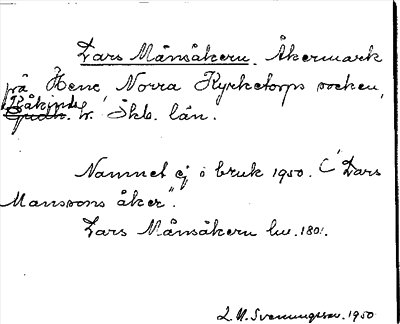 Lars Månsåkern. Åkermark
på Hene Norra Kyrketorps socken,
Kåkinds
Gudh. h. Skb. län.
Namnet ej i bruk 1950. ("Lars
Månssons åker".
Lars Månsåkern lm. 1801.
L. M. Svenungsson. 1950